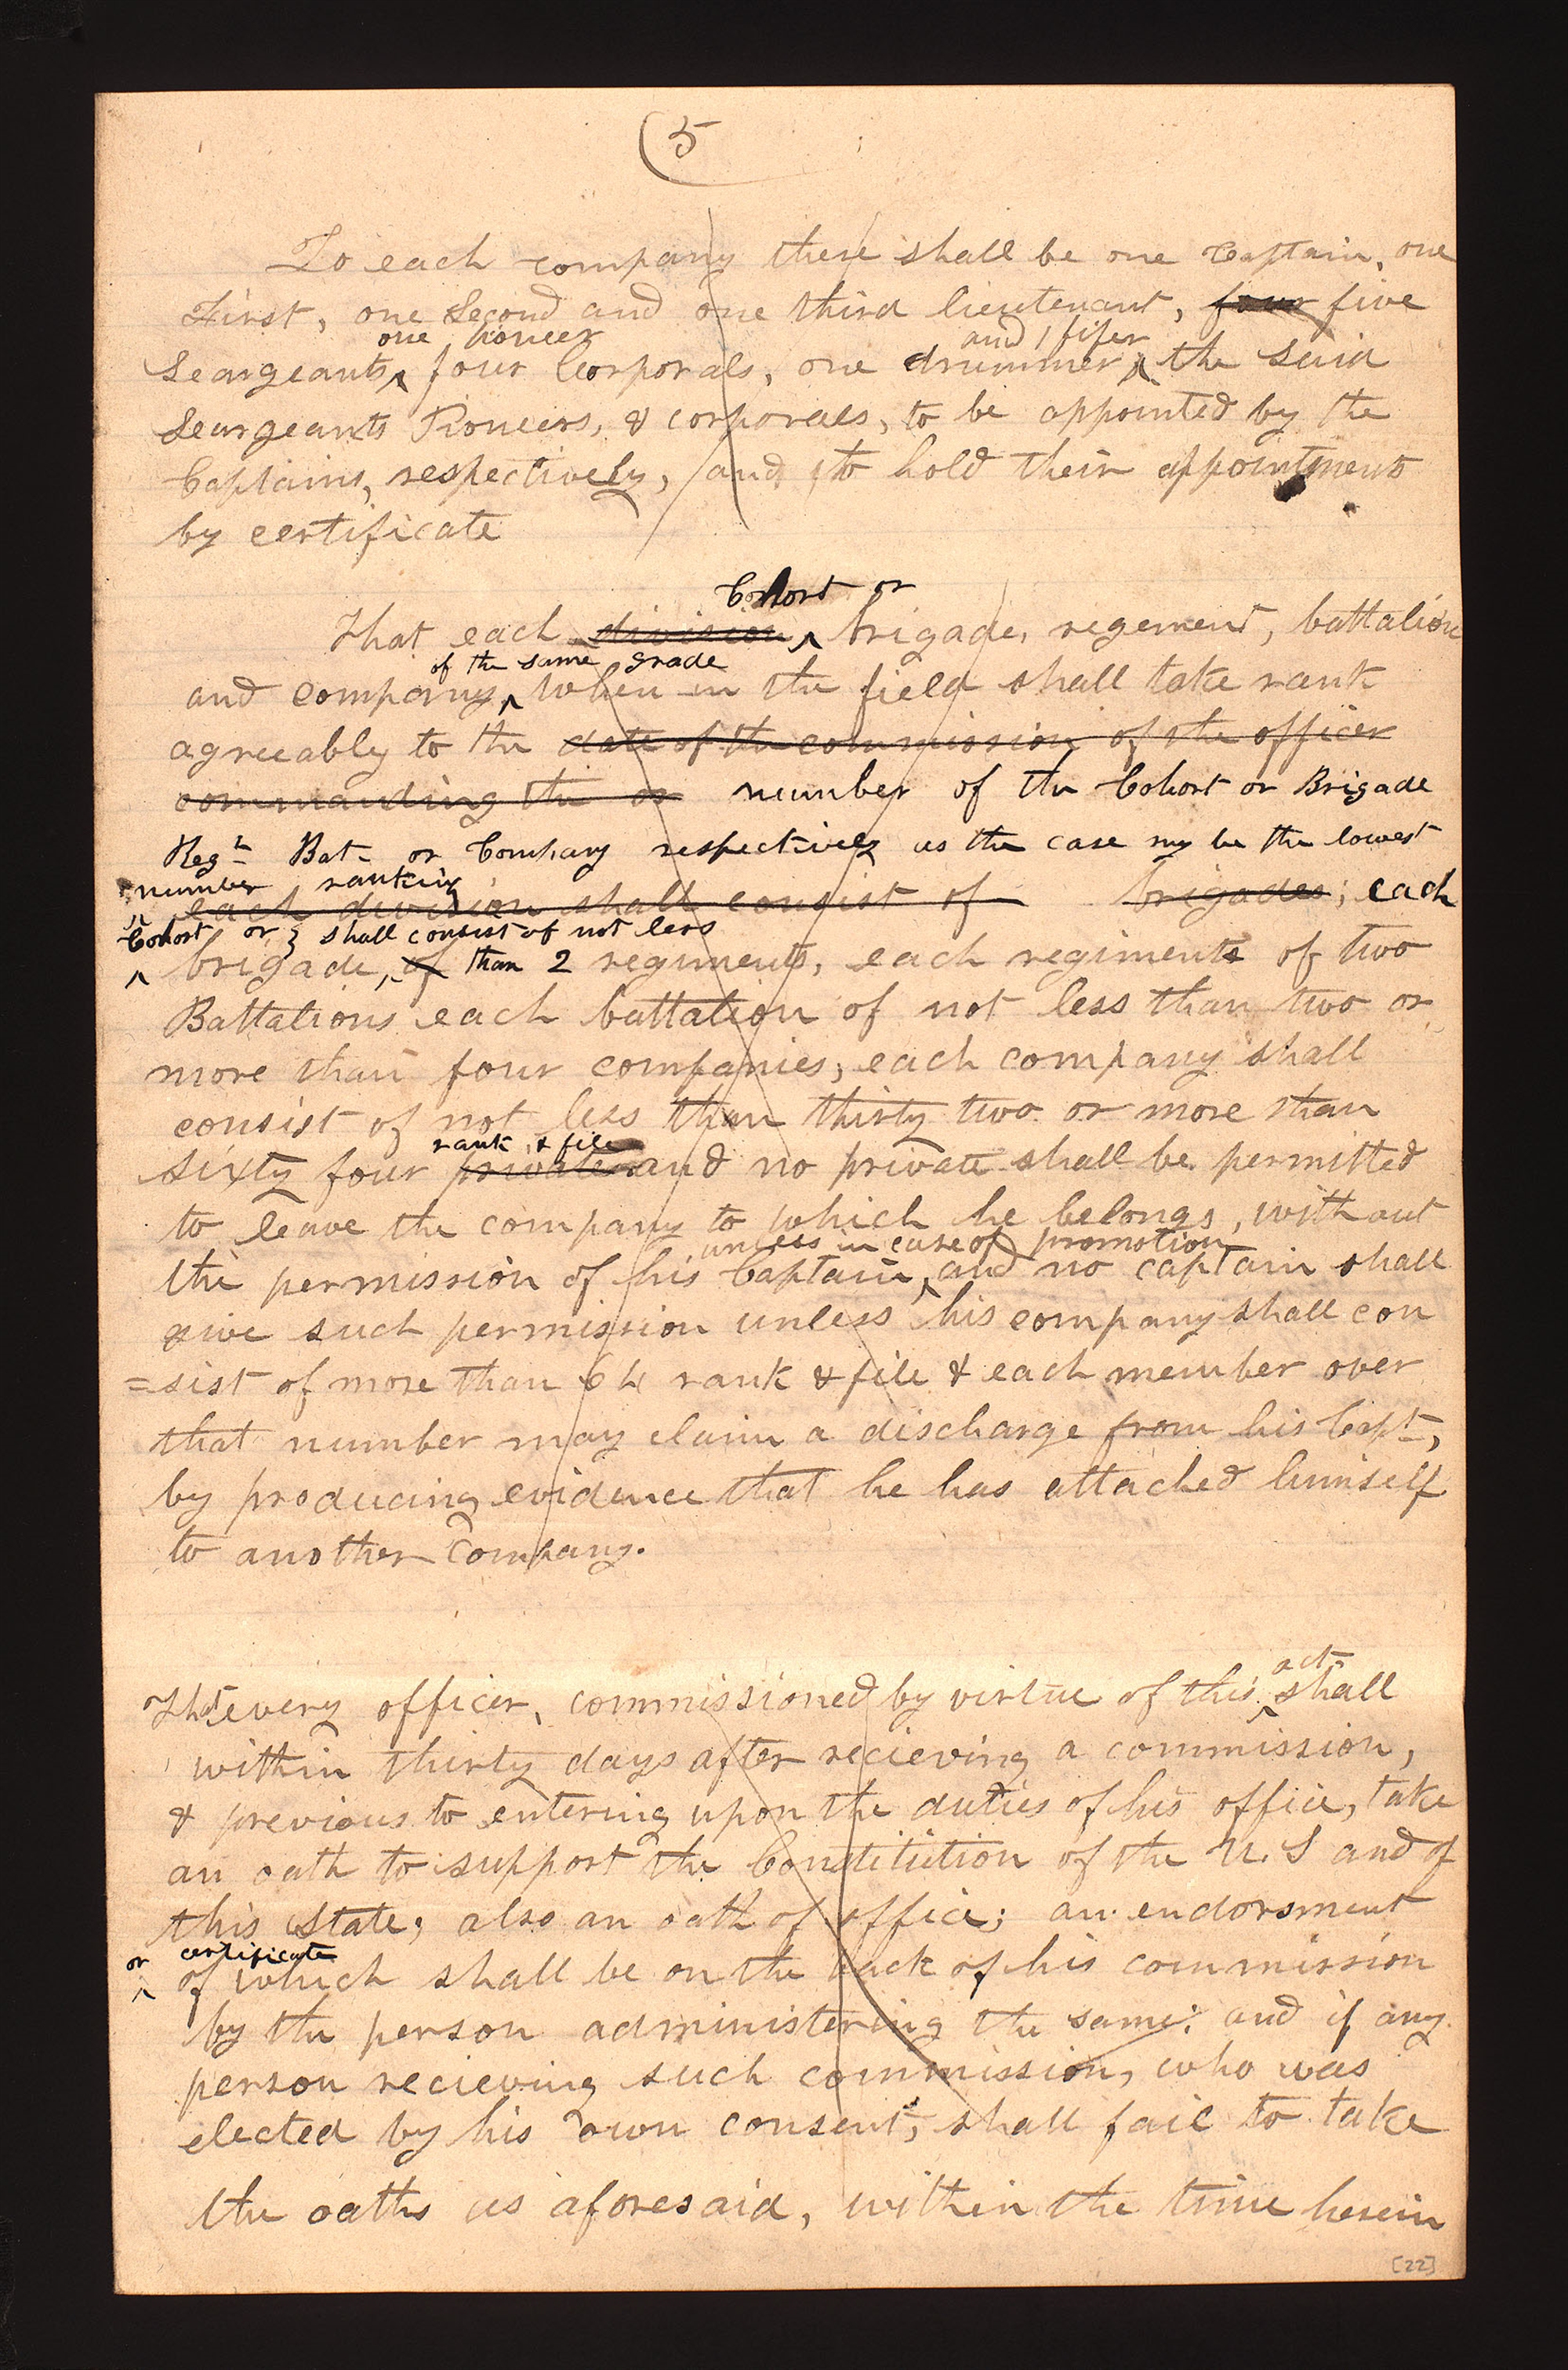 (5
To each company there shall be one Captain, one
First, one Second and one third lieutenant, four five
one pioneer and 1 fifer
Seargeants, four Corporals, one drummer, the said
Seargeants Pioneers, & corporals, to be appointed by the
Captains, respectively, and to hold their appointments
by certificate
Cohort or
That each division brigade, regement, battalion
of the same grade
and company, when in the field shall take rank
agreeably to the date of the commission of the officer
commanding the or number of the Cohort or Brigade
Regt Bat- or Company respectively as the case my be the lowest
number ranking
each division shall consist of brigades; each
Cohort or } shall consist of not less
brigade, of than 2 regiments, each regiments of two
Battalions each battalion of not less than two or
more than four companies; each company shall
consist of not less than thirty two or more than
rank & file
sixty four privates and no private shall be permitted
to leave the company to which he belongs, without
unless in case of promotion
the permission of his Captain, and no captain shall
give such permission unless his company shall con
=sist of more than 64 rank & file & each member over
that number may claim a discharge from his Capt,
by producing evidence that he has attached himself
to another Company.
act
That every officer, commissioned by virtue of this shall
within thirty days after recieving a commission,
& previous to entering upon the duties of his office, take
an oath to support the Constitution of the U.S and of
this State; also an oath of office; an endorsment
or certificate
of which shall be on the back of his commission
by the person administering the same; and if any
person recieving such commission, who was
elected by his own consent, shall fail to take
the oaths as aforesaid, within the time herein
[22]